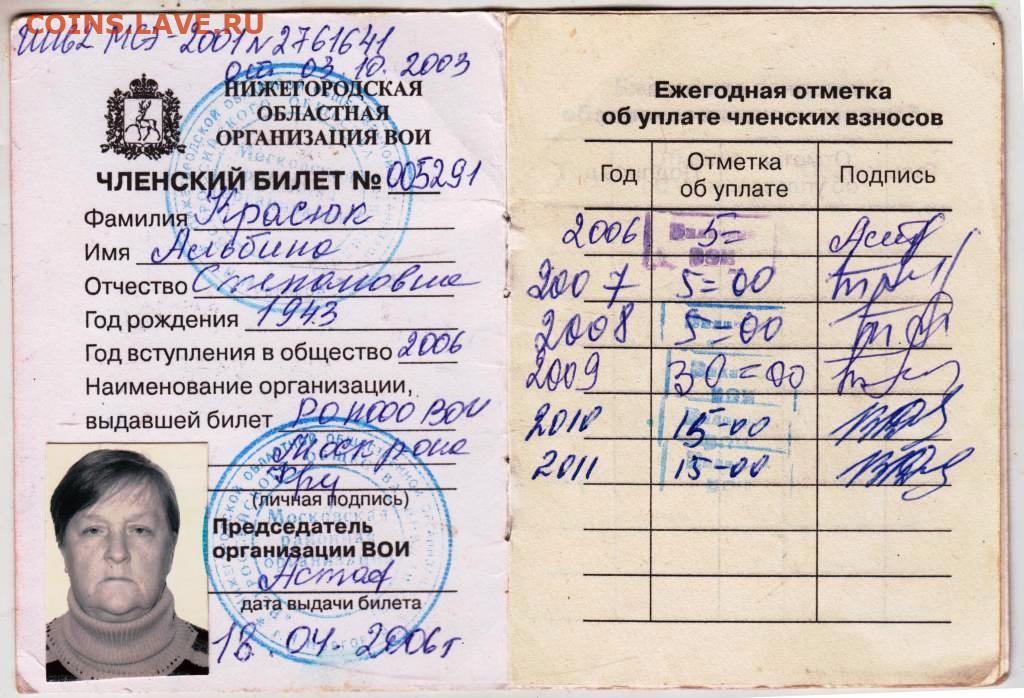 COINS.LAVE.RU
МСЭ-2001 № 2761641
от 03 10. 2003
НИЖЕГОРОДСКАЯ
ОБЛАСТНАЯ
ОРГАНИЗАЦИЯ ВОИ
ЧЛЕНСКИЙ БИЛЕТ № 005291
Фамилия Красюк
Имя Альбина
Отчество Степановна
Год рождения 1943
Год вступления в общество 2006
Наименование организации,
выдавшей билет РО НООО ВОИ
Моск р-она
(личная подпись)
Председатель
организации ВОИ
дата выдачи билета
18.04.2006г
Московская
районная
организация
Ежегодная отметка
об уплате членских взносов
Год Отметка об уплате Подпись
2006 5=
2007 5=00
2008 5=00
2009 30=00
2010 15-00
2011 15-00